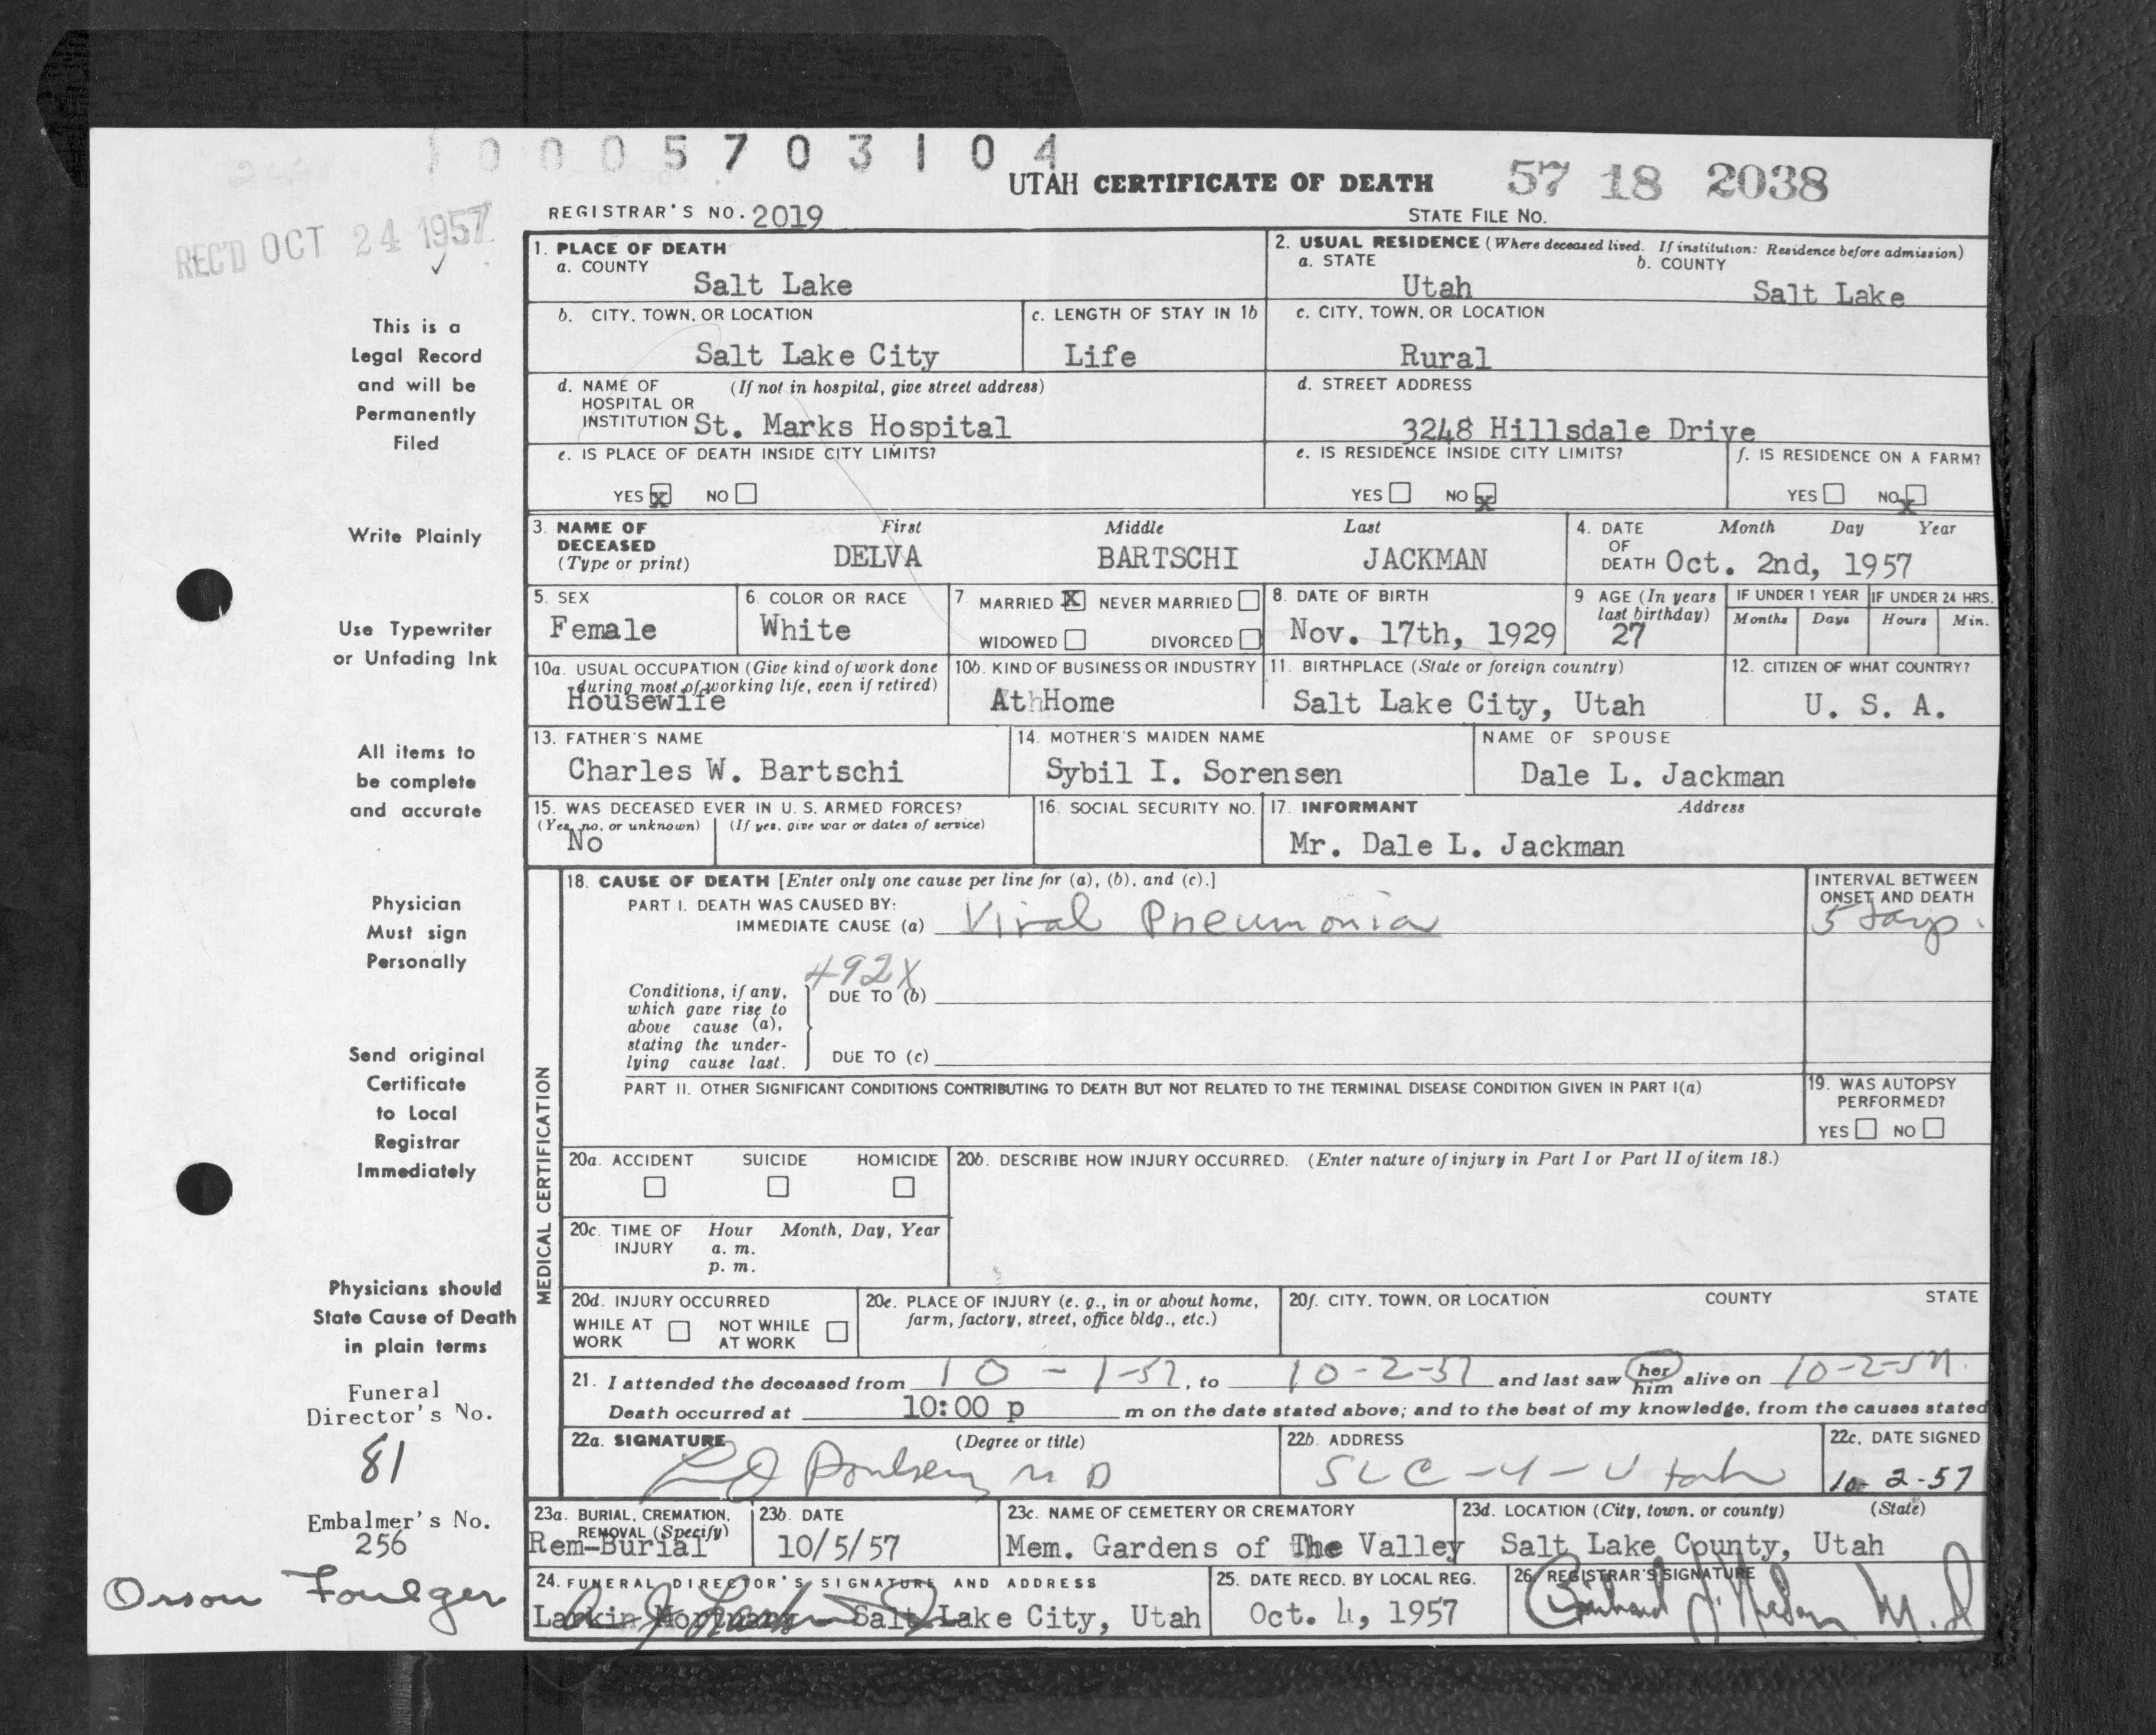 10005703104
UTAH CERTIFICATE OF DEATH
57 18 2038
REGISTRAR'S NO. 2019
STATE FILE NO.
REC'D OCT 24 1957
1. PLACE OF DEATH
a. COUNTY
Salt Lake
2. USUAL RESIDENCE (Where deceased lived. If institution: Residence before admission)
a. STATE
Utah
b. COUNTY
Salt Lake
b. CITY, TOWN, OR LOCATION
Salt Lake City
c. LENGTH OF STAY IN 1b
Life
c. CITY, TOWN, OR LOCATION
Rural
d. NAME OF HOSPITAL OR INSTITUTION
(If not in hospital, give street address)
St. Marks Hospital
d. STREET ADDRESS
3248 Hillsdale Drive
e. IS PLACE OF DEATH INSIDE CITY LIMITS?
YES x NO
e. IS RESIDENCE INSIDE CITY LIMITS?
YES NO x
f. IS RESIDENCE ON A FARM?
YES NO x
3. NAME OF DECEASED
(Type or print)
First
DELVA
Middle
BARTSCHI
Last
JACKMAN
4. DATE OF DEATH
Month Day Year
Oct. 2nd, 1957
5. SEX
Female
6. COLOR OR RACE
White
7. MARRIED X NEVER MARRIED
WIDOWED DIVORCED
8. DATE OF BIRTH
Nov. 17th, 1929
9 AGE (In years last birthday)
27
IF UNDER 1 YEAR
Months Days
IF UNDER 24 HRS.
Hours Min.
10a. USUAL OCCUPATION (Give kind of work done during most of working life, even if retired)
Housewife
10b. KIND OF BUSINESS OR INDUSTRY
At Home
11. BIRTHPLACE (State or foreign country)
Salt Lake City, Utah
12. CITIZEN OF WHAT COUNTRY?
U. S. A.
13. FATHER'S NAME
Charles W. Bartschi
14. MOTHER'S MAIDEN NAME
Sybil I. Sorensen
NAME OF SPOUSE
Dale L. Jackman
15. WAS DECEASED EVER IN U. S. ARMED FORCES?
(Yes, no, or unknown) (If yes, give war or dates of service)
No
16. SOCIAL SECURITY NO.
17. INFORMANT
Address
Mr. Dale L. Jackman
MEDICAL CERTIFICATION
18. CAUSE OF DEATH [Enter only one cause per line for (a), (b), and (c).]
PART I. DEATH WAS CAUSED BY:
IMMEDIATE CAUSE (a) Viral Pneumonia
INTERVAL BETWEEN ONSET AND DEATH
5 days.
492X
Conditions, if any, which gave rise to above cause (a), stating the underlying cause last.
DUE TO (b)
DUE TO (c)
PART II. OTHER SIGNIFICANT CONDITIONS CONTRIBUTING TO DEATH BUT NOT RELATED TO THE TERMINAL DISEASE CONDITION GIVEN IN PART I(a)
19. WAS AUTOPSY PERFORMED?
YES NO
20a. ACCIDENT SUICIDE HOMICIDE
20b. DESCRIBE HOW INJURY OCCURRED. (Enter nature of injury in Part I or Part II of item 18.)
20c. TIME OF INJURY
Hour Month, Day, Year
a. m.
p. m.
20d. INJURY OCCURRED
WHILE AT WORK NOT WHILE AT WORK
20e. PLACE OF INJURY (e. g., in or about home, farm, factory, street, office bldg., etc.)
20f. CITY, TOWN, OR LOCATION COUNTY STATE
21. I attended the deceased from 10-1-57, to 10-2-57 and last saw her him alive on 10-2-57.
Death occurred at 10:00 p m on the date stated above; and to the best of my knowledge, from the causes stated
22a. SIGNATURE (Degree or title)
Poulsen M D
22b. ADDRESS
SLC-4-Utah
22c. DATE SIGNED
10-2-57
23a. BURIAL, CREMATION, REMOVAL (Specify)
Rem-Burial
23b. DATE
10/5/57
23c. NAME OF CEMETERY OR CREMATORY
Mem. Gardens of The Valley
23d. LOCATION (City, town, or county) (State)
Salt Lake County, Utah
24. FUNERAL DIRECTOR'S SIGNATURE AND ADDRESS
Larkin Mortuary Salt Lake City, Utah
25. DATE RECD. BY LOCAL REG.
Oct. 4, 1957
26. REGISTRAR'S SIGNATURE
M.D
This is a
Legal Record
and will be
Permanently
Filed
Write Plainly
Use Typewriter
or Unfading Ink
All items to
be complete
and accurate
Physician
Must sign
Personally
Send original
Certificate
to Local
Registrar
Immediately
Physicians should
State Cause of Death
in plain terms
Funeral
Director's No.
81
Embalmer's No.
256
Orson Foulger